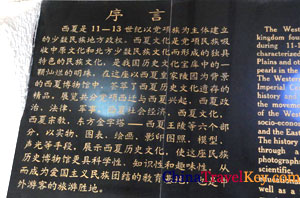 序言
西夏是11—13世纪以党项族为主体建立
的少数民族地方政权。西夏文化是党项民族吸
收中原文化和地方少数民族文化而形成的独具
特色的民族文化，是我国历史文化宝库中的一
颗灿烂的明珠。在这座以西夏皇家陵园为背景
的西夏博物馆中，荟萃了西夏历史文化遗存的
精华，展览共分党项西迁与西夏兴起、西夏政
治、法律、军事、西夏社会经济、西夏文化、
西夏宗教、东方金字塔——西夏王陵等六个部
分，以实物、图表、绘画、影相图照、模型、
声光等手段，展示西夏历史文化，使这座民族
历史博物馆更具科学性、知识性和趣味性，从
而成为爱国主义民族团结的教育
外游客的旅游胜地。
The West
kingdom fou
during 11-1
characteristi
Plains and ot
pearls in the
The Western
Imperial Ce
history and
the moveme
of the West
socio-econo
and the East
The history
through a
photograph
scientific,
well as a
ChinaTravelKey.com